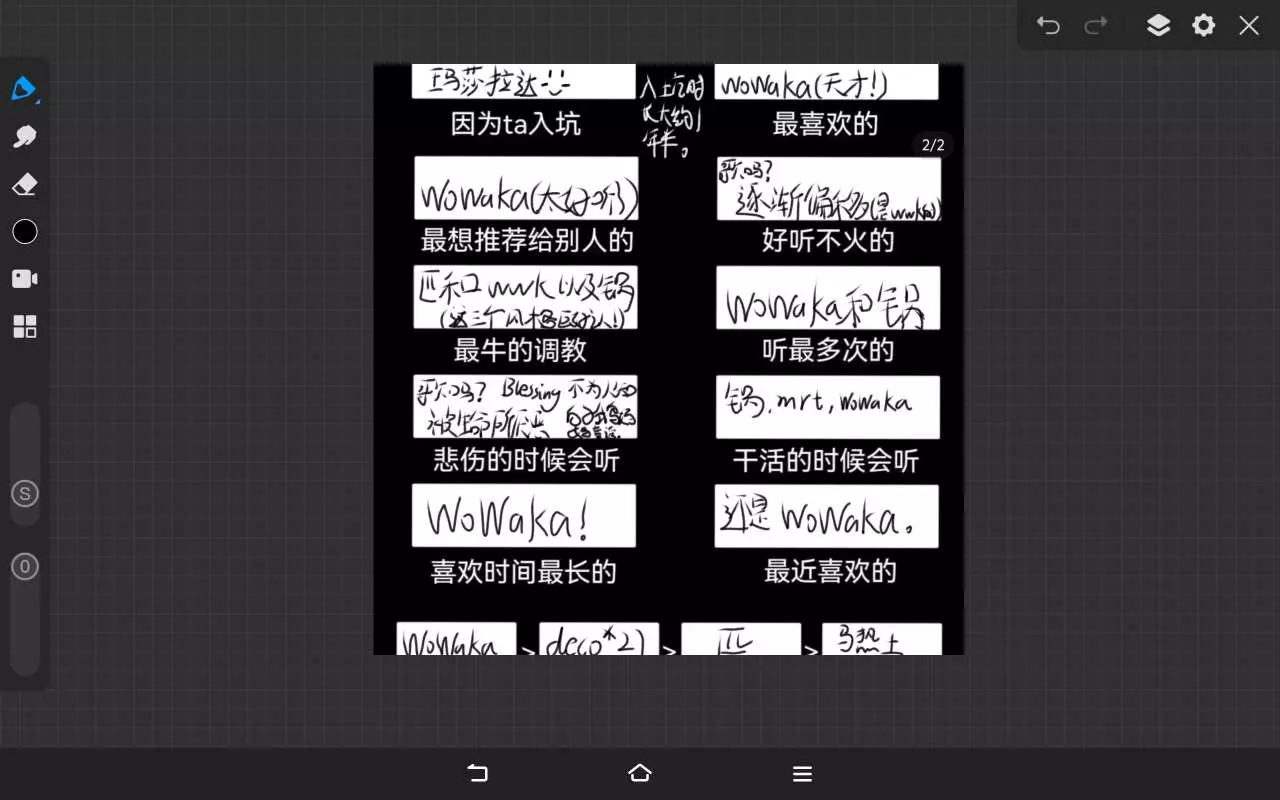 玛莎拉达
因为ta入坑
入坑时
长大约1
年半。
wowaka(天才!)
最喜欢的
2/2
wowaka(太好听)
最想推荐给别人的
歌吗?
逐渐偏移(是wwk的)
好听不火的
匹和wwk以及锅
(这三个风格区分人!)
最牛的调教
wowaka和锅
听最多次的
歌吗? Blessing 不为人知
被生命所厌恶
悲伤的时候会听
锅,mrt,wowaka
干活的时候会听
WoWaka!
喜欢时间最长的
还是 WoWaka。
最近喜欢的
WoWaka > deco*27 > 匹 >
S
0